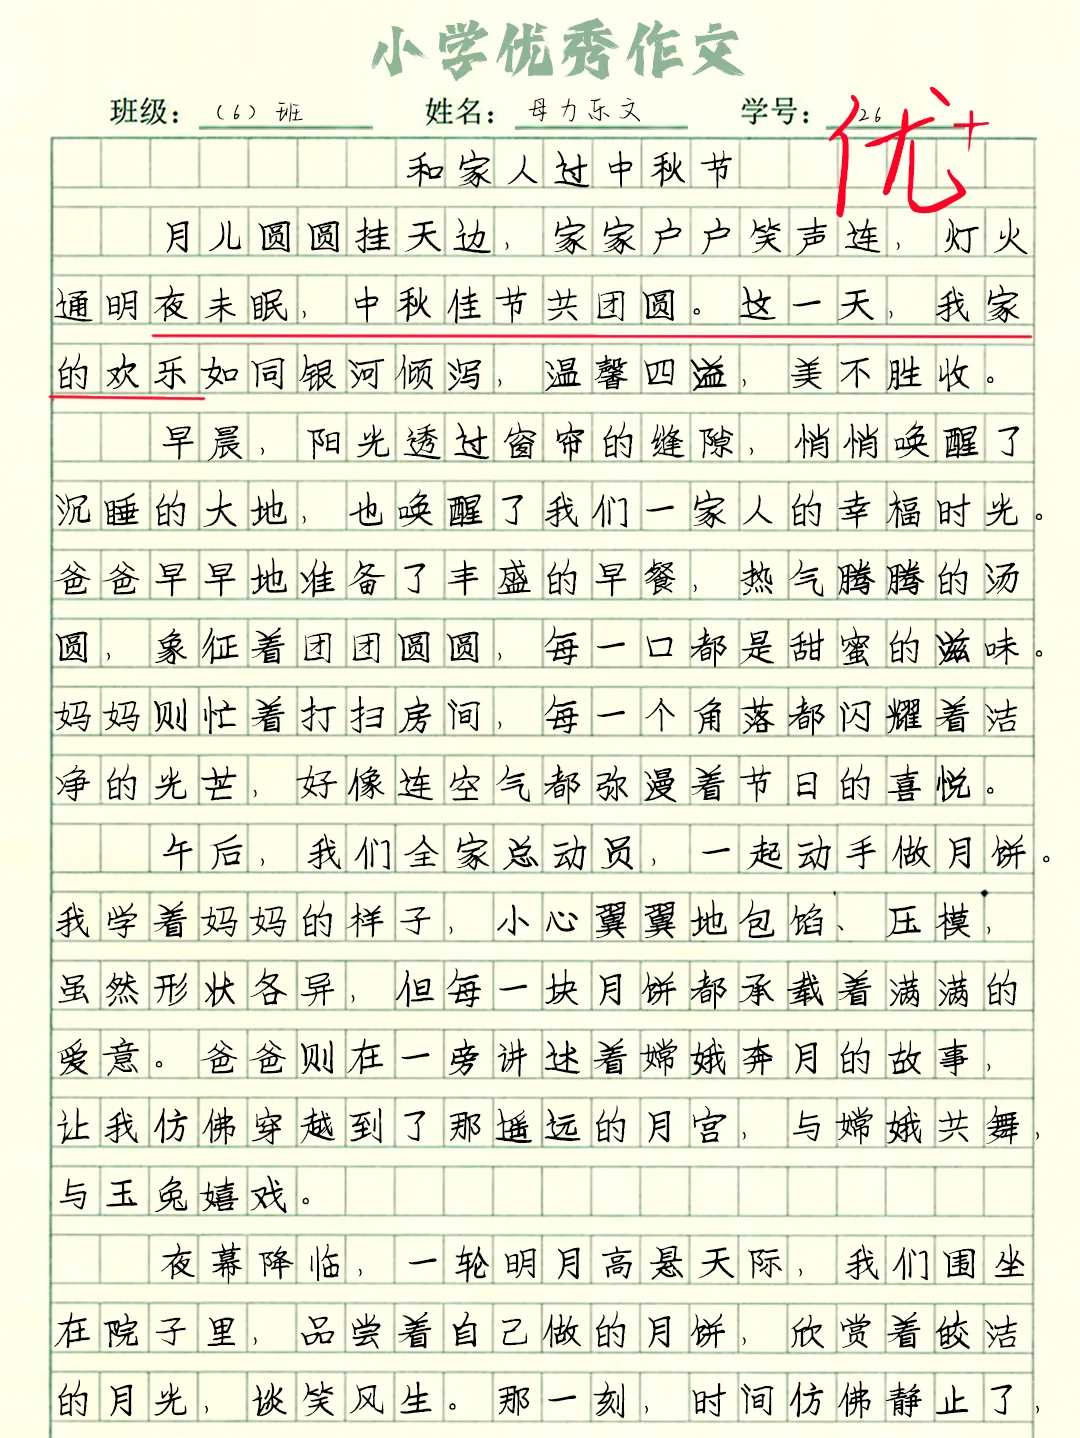 小学优秀作文
班级：（6）班 姓名：母力乐文 学号：26
优+
和家人过中秋节
月儿圆圆挂天边，家家户户笑声连，灯火
通明夜未眠，中秋佳节共团圆。这一天，我家
的欢乐如同银河倾泻，温馨四溢，美不胜收。
早晨，阳光透过窗帘的缝隙，悄悄唤醒了
沉睡的大地，也唤醒了我们一家人的幸福时光。
爸爸早早地准备了丰盛的早餐，热气腾腾的汤
圆，象征着团团圆圆，每一口都是甜蜜的滋味。
妈妈则忙着打扫房间，每一个角落都闪耀着洁
净的光芒，好像连空气都弥漫着节日的喜悦。
午后，我们全家总动员，一起动手做月饼。
我学着妈妈的样子，小心翼翼地包馅、压模，
虽然形状各异，但每一块月饼都承载着满满的
爱意。爸爸则在一旁讲述着嫦娥奔月的故事，
让我仿佛穿越到了那遥远的月宫，与嫦娥共舞，
与玉兔嬉戏。
夜幕降临，一轮明月高悬天际，我们围坐
在院子里，品尝着自己做的月饼，欣赏着皎洁
的月光，谈笑风生。那一刻，时间仿佛静止了，